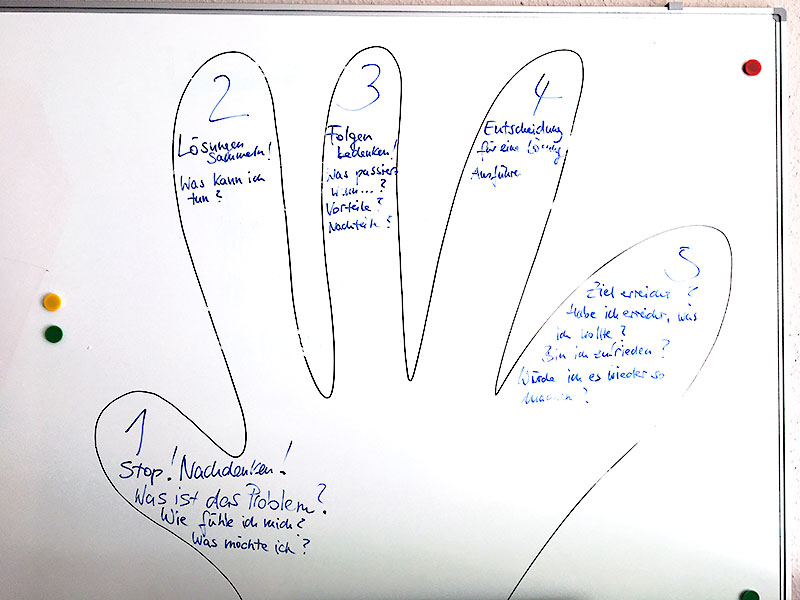 1
Stop! Nachdenken!
Was ist das Problem?
Wie fühle ich mich?
Was möchte ich?
2
Lösungen
sammeln!
Was kann ich
tun?
3
Folgen
bedenken!
Was passiert
wenn...?
Vorteile?
Nachteile?
4
Entscheidung
für eine Lösung
Ausführen
5
Ziel erreicht?
Habe ich erreicht, was
ich wollte?
Bin ich zufrieden?
Würde ich es wieder so
machen?